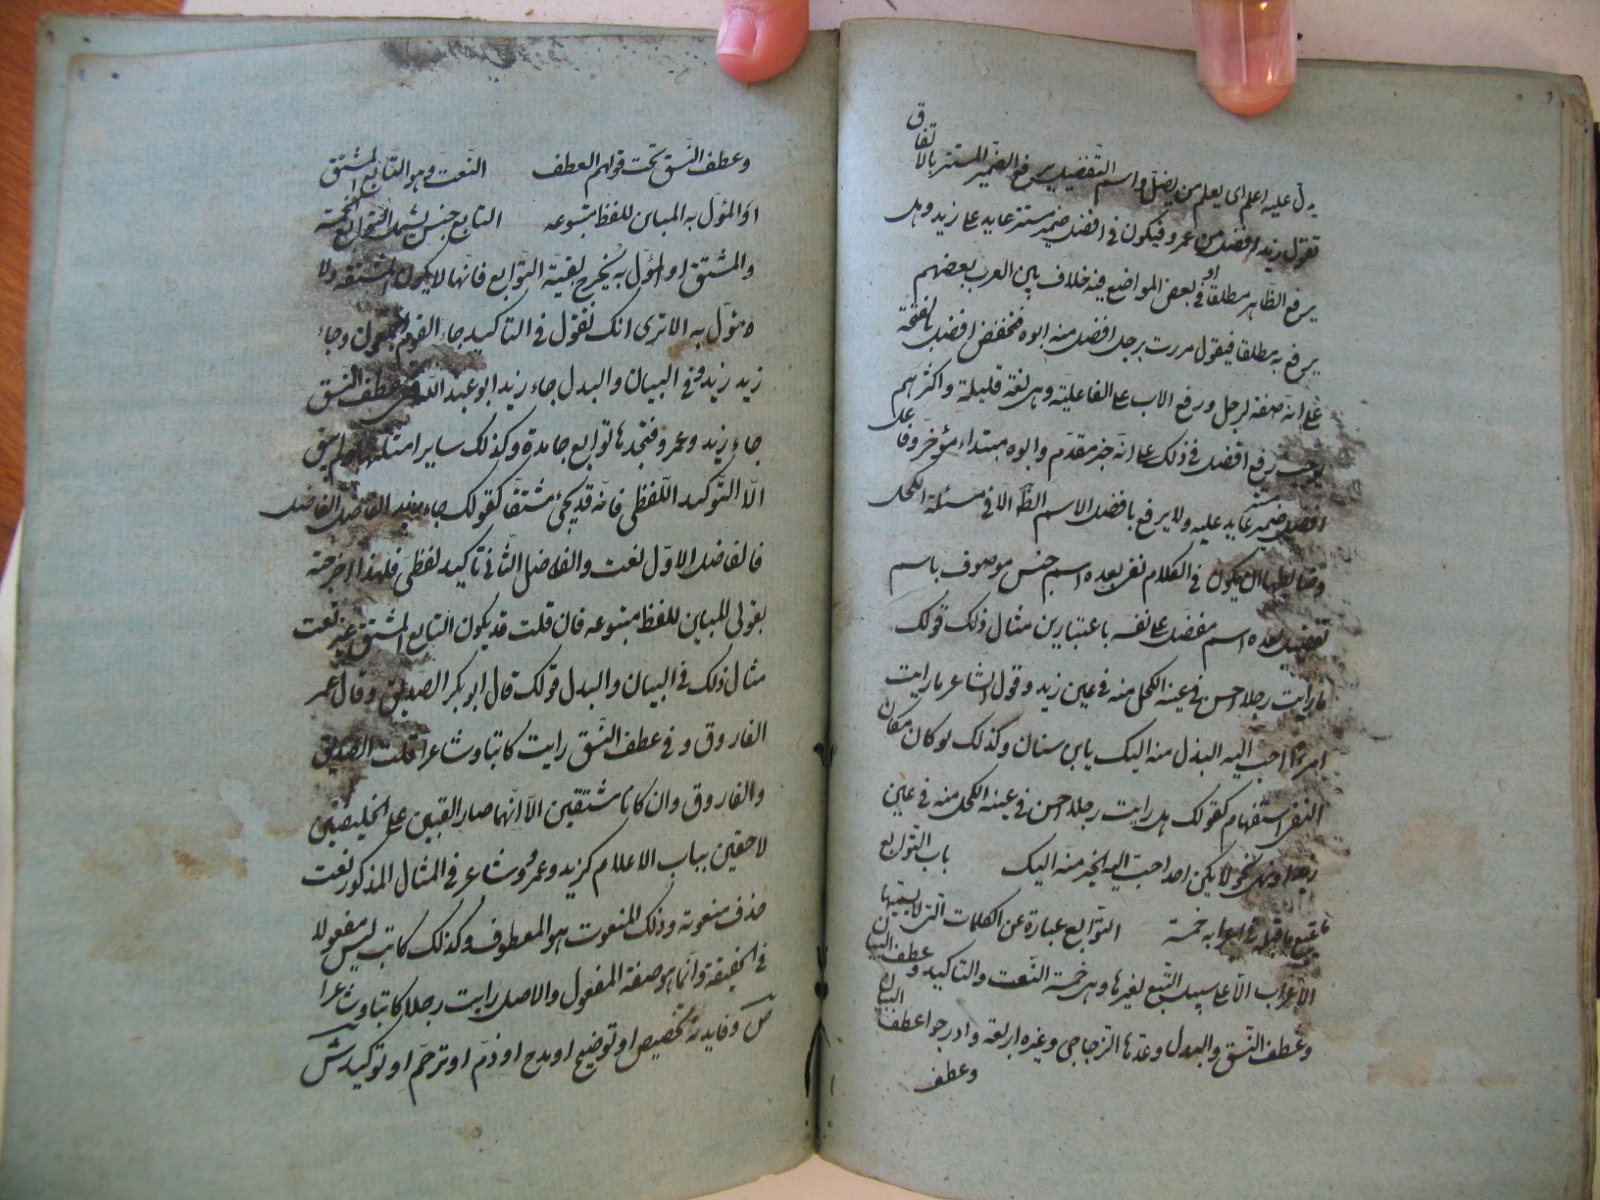 يدل عليه اعلم اى يعلم من يضل واسم التفضيل يرفع الضمير المستتر بالاتفاق
تقول زيد افضل من عمرو فيكون فى افضل ضمير مستتر عايد على زيد وهل
يرفع الظاهر مطلقا او فى بعض المواضع فيه خلاف بين العرب بعضهم
يرفع به مطلقا فيقول مررت برجل افضل منه ابوه فتخفض افضل بالفتحة
على انه صفة لرجل ورفع الاب على الفاعلية وهى لغة قليلة واكثرهم
يوجب رفع افضل فى ذلك على انه خبر مقدم وابوه مبتداء مؤخر وفاعل
افضل ضمير مستتر عايد عليه ولا يرفع بافضل الاسم الظاهر الا فى مسئلة الكحل
وضابطها ان يكون فى الكلام نفى بعده اسم جنس موصوف باسم
تفضيل بعده اسم مفضل على نفسه باعتبارين مثال ذلك قولك
ما رايت رجلا احسن فى عينه الكحل منه فى عين زيد وقول الشاعر ما رايت
امرءا احب اليه البذل منه اليك يابن سنان وكذلك لو كان مكان
النفى استفهام كقولك هل رايت رجلا احسن فى عينه الكحل منه فى عين
زيد او نهى نحو لا يكن احد احب اليه الخير منه اليك باب التوابع
يتبع ما قبله فى اعرابه خمسة التوابع عبارة عن الكلمات التى لا يمسها
الاعراب الا على سبيل التبع لغيرها وهى خمسة النعت والتاكيد وعطف البيان
وعطف النسق والبدل وعدها الزجاجى وغيره اربعة وادرجوا عطف البيان
وعطف
وعطف النسق تحت قولهم العطف النعت وهو التابع المشتق
او المؤل به المباين للفظ متبوعه التابع جنس يشمل التوابع الخمسة
والمشتق او المؤل به يخرج لبقية التوابع فانها لا يكون مشتقة ولا
مئول به الا ترى انك تقول فى التاكيد جاء القوم اجمعون وجاء
زيد زيد وفى البيان والبدل جاء زيد ابو عبد الله وفى عطف النسق
جاء زيد وعمرو فتجدها توابع جامدة وكذلك ساير امثلتها ولم يبق
الا التوكيد اللفظى فانه قد يجئ مشتقا كقولك جاء زيد الفاضل الفاضل
فالفاضل الاول نعت والفاضل الثانى تاكيد لفظى فلهذا اخرجته
بقولى المباين للفظ متبوعه فان قلت قد يكون التابع المشتق غير نعت
مثال ذلك فى البيان والبدل قولك قال ابو بكر الصديق وقال عمر
الفاروق وفى عطف النسق رايت كاتبا وشاعرا قلت الصديق
والفاروق وان كانا مشتقين الا انهما صارا لقبين على الخليفتين
لاحقين بباب الاعلام كزيد وعمرو وشاعر فى المثال المذكور نعت
حذف منعوته وذلك المنعوت هو المعطوف وكذلك كاتب ليس مفعولا
فى الحقيقة وانما هو صفة المفعول والاصل رايت رجلا كاتبا وشاعرا
ص وفايدته تخصيص او توضيح او مدح او ذم او ترحم او توكيد ش